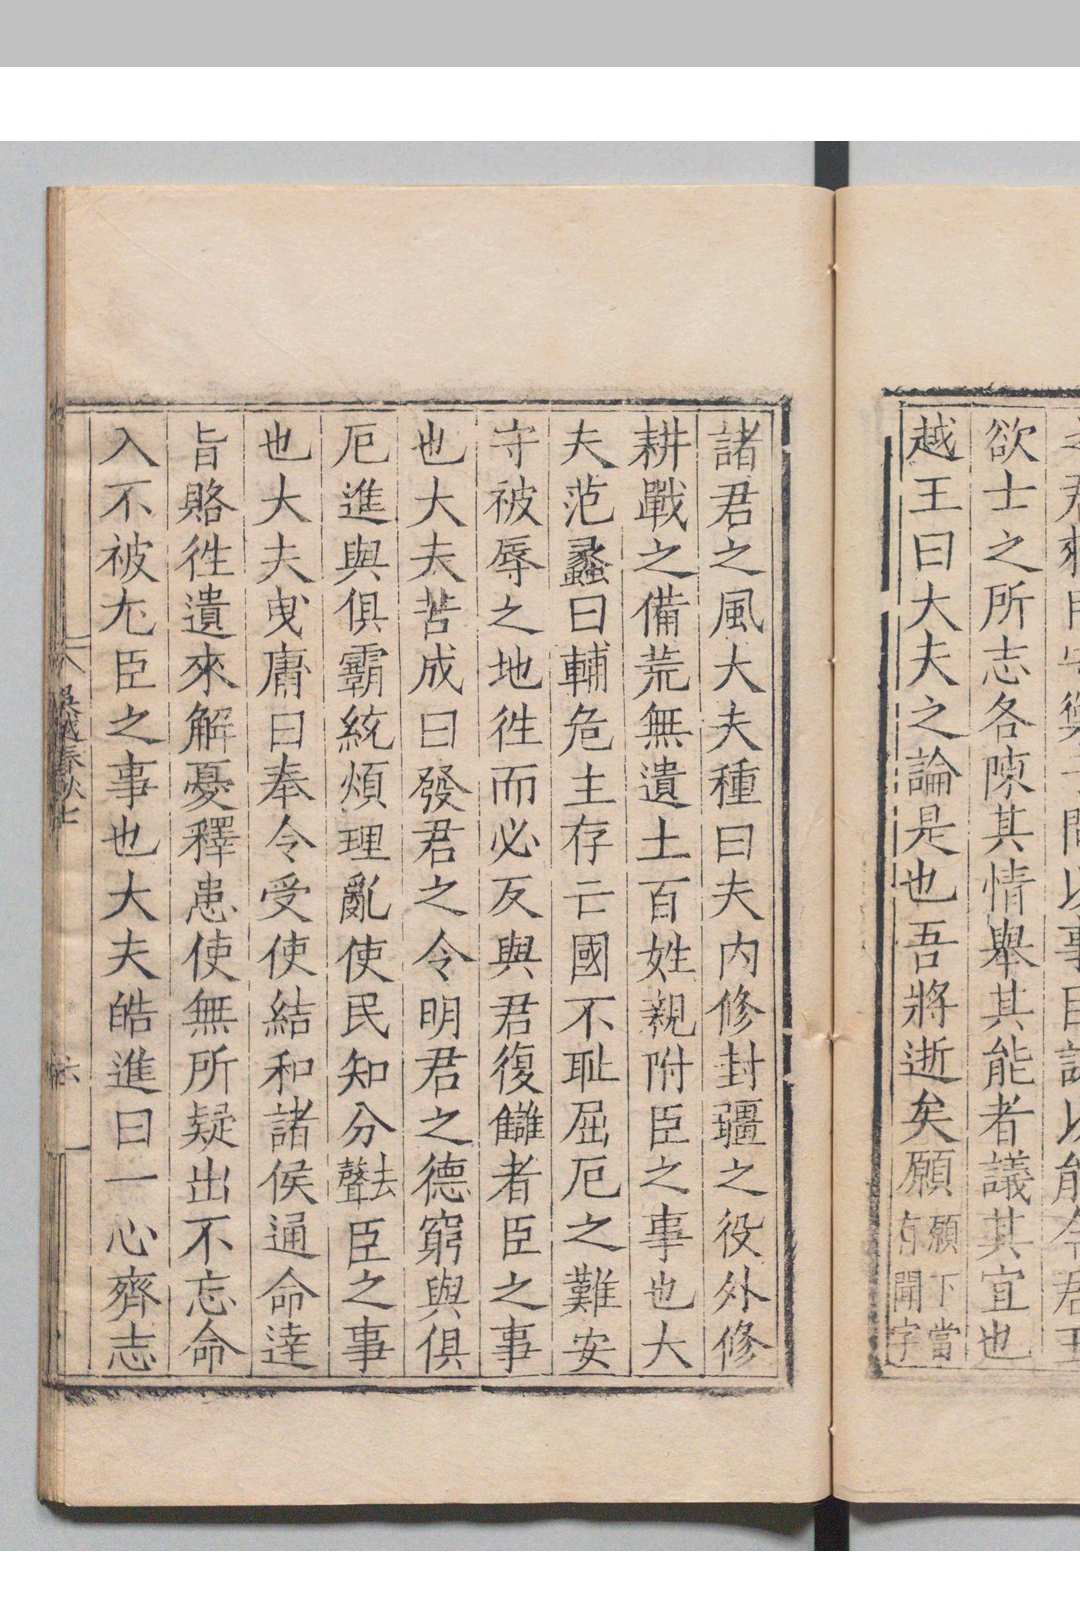 欲士之所志各陳其情舉其能者議其宜也
越王曰大夫之論是也吾將逝矣願
願下當
有聞字
諸君之風大夫種曰夫内修封疆之役外修
耕戰之備荒無遺土百姓親附臣之事也大
夫范蠡曰輔危主存亡國不耻屈厄之難安
守被辱之地徃而必反與君復讎者臣之事
也大夫苦成曰發君之令明君之德窮與俱
厄進與俱霸統煩理亂使民知分去聲臣之事
也大夫曳庸曰奉令受使結和諸侯通命達
旨賂徃遺來解憂釋患使無所疑出不忘命
入不被尤臣之事也大夫皓進曰一心齊志
吳越春秋七